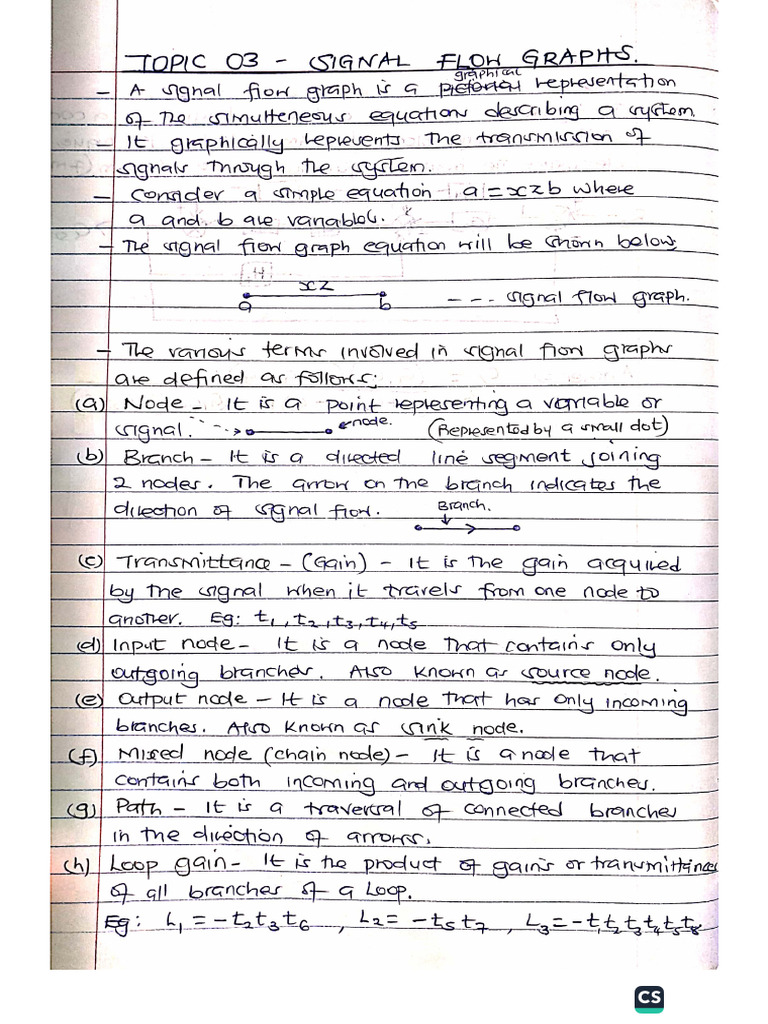 TOPIC 03 - SIGNAL FLOW GRAPHS.
graphical
- A signal flow graph is a pictorial representation
of the simulteneous equation describing a system.
- It graphically represents the transmission of
signals through the system.
- Consider a simple equation, a = xzb where
a and b are variables.
- The signal flow graph equation will be shown below
xz
a b - - - signal flow graph.
- The various terms involved in signal flow graphs
are defined as follows;
(a) Node - It is a point representing a variable or
signal. node. (Represented by a small dot)
(b) Branch - It is a directed line segment joining
2 nodes. The arrow on the branch indicates the
direction of signal flow. Branch.
(c) Transmittance - (Gain) - It is the gain acquired
by the signal when it travels from one node to
another. Eg: t1, t2, t3, t4, t5
(d) Input node - It is a node that contains only
outgoing branches. Also known as source node.
(e) Output node - It is a node that has only incoming
branches. Also known as sink node.
(f) Mixed node (chain node) - It is a node that
contains both incoming and outgoing branches.
(g) Path - It is a traversal of connected branches
in the direction of arrows.
(h) Loop gain - It is the product of gains or transmittances
of all branches of a Loop.
Eg: L1 = -t2t3t6 , L2 = -t5t7 , L3 = -t1t2t3t4t5t8
CS